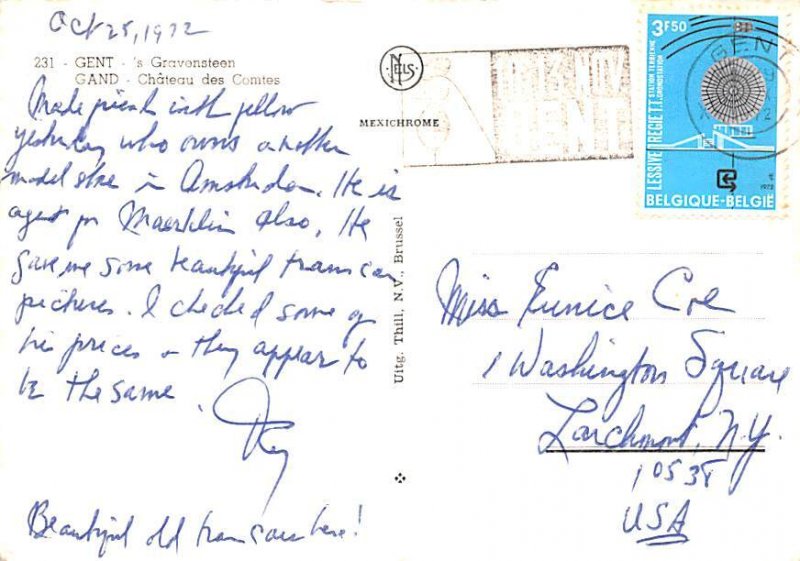 Oct 25, 1972
231 - GENT - 's Gravensteen
GAND - Château des Comtes
NELS
MEXICHROME
Made friends with fellow
yesterday who owns another
model store in Amsterdam. He is
agent for Maerklin also. He
gave me some beautiful tram car
pictures. I checked some of
his prices & they appear to
be the same.
Beautiful old tram cars here!
Uitg. Thill, N.V., Brussel
GENT
3F50
LESSIVE REGIE T.T.
STATION TERRIENNE
GRONDSTATION
1972
BELGIQUE-BELGIË
Miss Eunice Coe
1 Washington Square
Larchmont, N.Y.
10538
USA